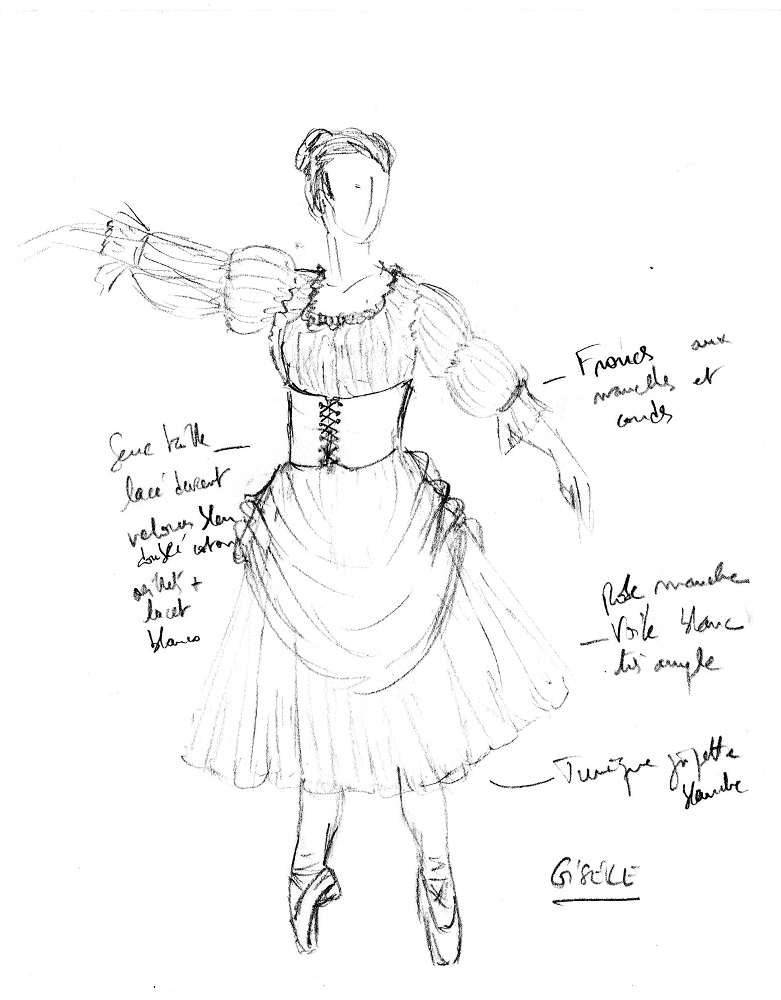 Fronces aux
manches et
coudes
Serre taille
lacé devant
velours bleu
doublé coton
œillet +
lacet
blanco
Robe manche
Voile blanc
très ample
Tunique
blanche
GISÈLE